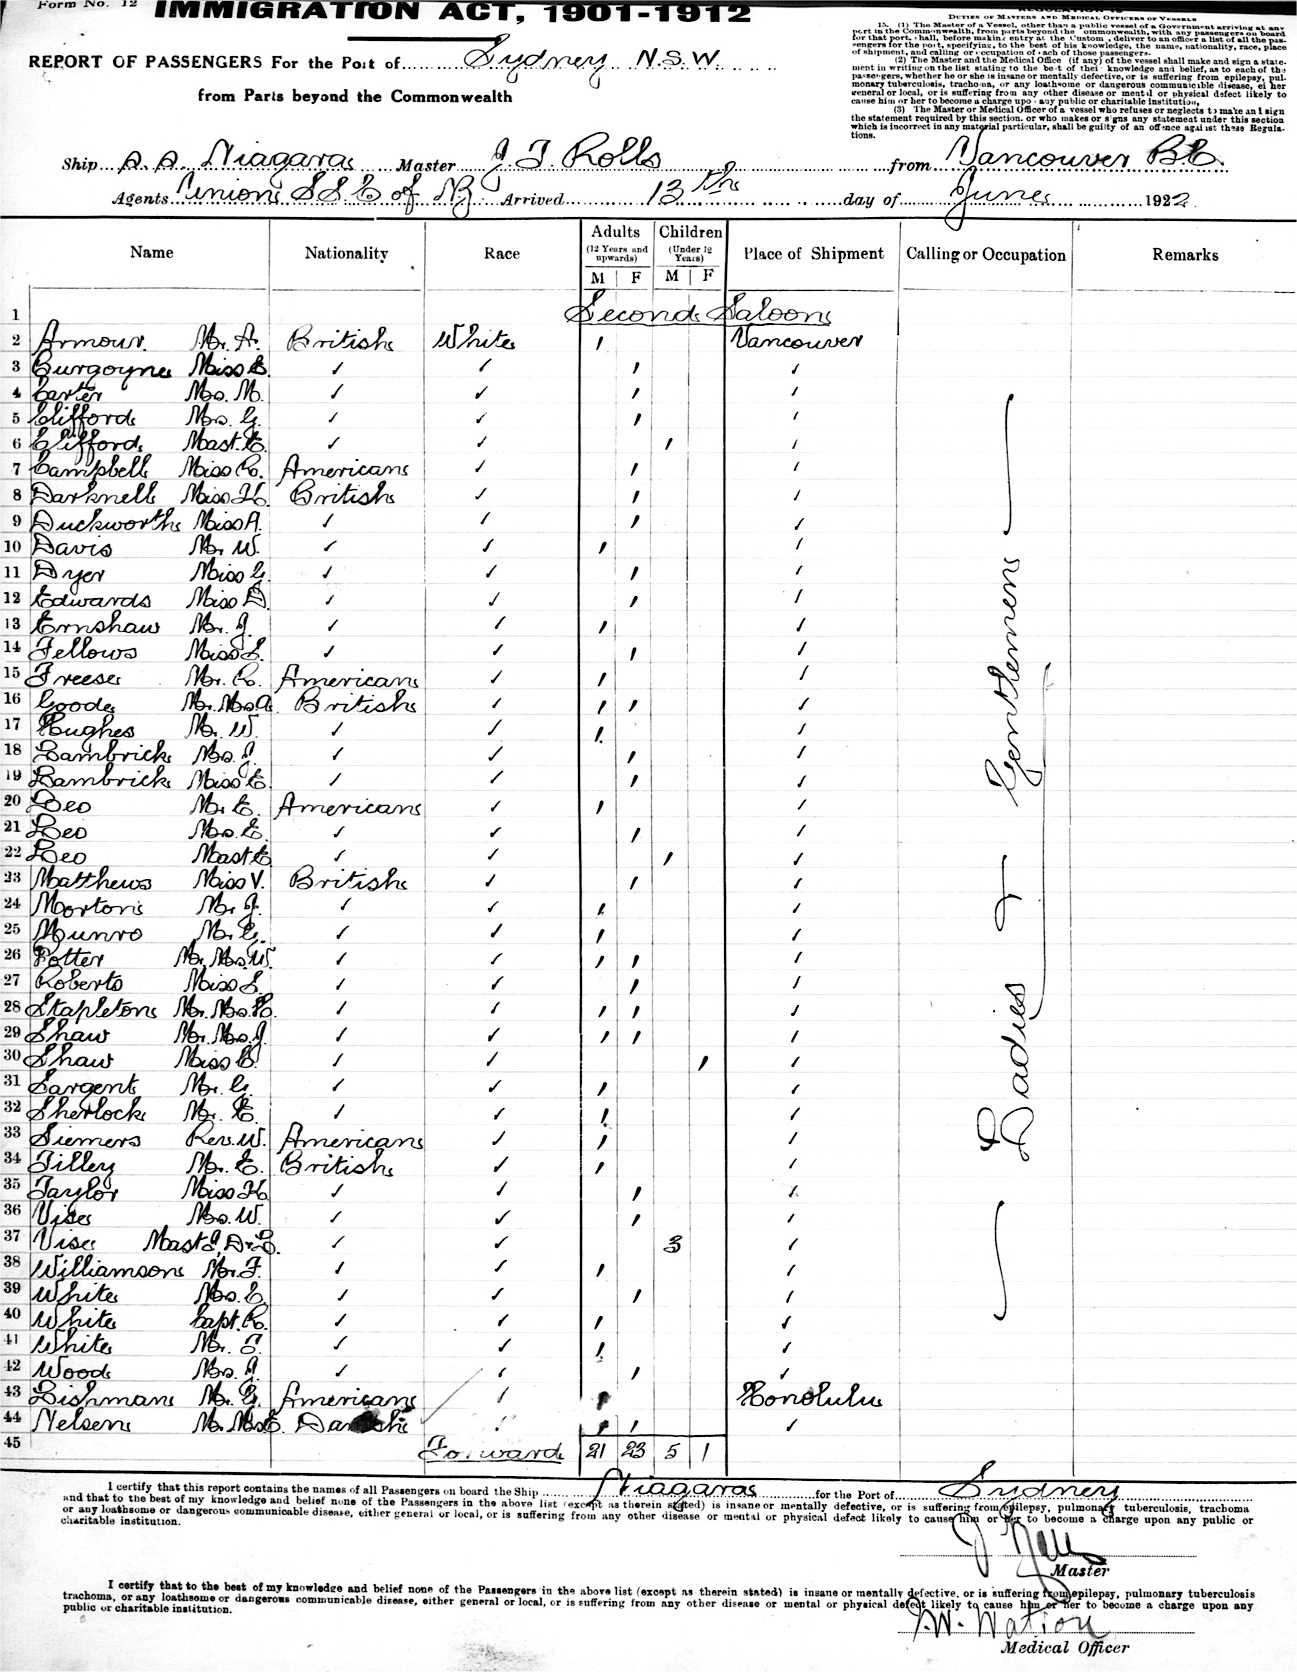 Form No. 12
IMMIGRATION ACT, 1901-1912
DUTIES OF MASTERS AND MEDICAL OFFICERS OF VESSELS
15. (1) The Master of a Vessel, other than a public vessel of a Government arriving at any
port in the Commonwealth, from parts beyond the Commonwealth, with any passengers on board
for that port, shall, before making entry at the Customs, deliver to an officer a list of all the pas-
sengers for the port, specifying, to the best of his knowledge, the name, nationality, race, place
of shipment, and calling or occupation of each of those passengers.
(2) The Master and the Medical Office (if any) of the vessel shall make and sign a state-
ment in writing on the list stating to the best of their knowledge and belief, as to each of the
passengers, whether he or she is insane or mentally defective, or is suffering from epilepsy, pul-
monary tuberculosis, trachoma, or any loathsome or dangerous communicable disease, either
general or local, or is suffering from any other disease or mental or physical defect likely to
cause him or her to become a charge upon any public or charitable institution,
(3) The Master or Medical Officer of a vessel who refuses or neglects to make and sign
the statement required by this section, or who makes or signs any statement under this section
which is incorrect in any material particular, shall be guilty of an offence against these Regula-
tions.
REPORT OF PASSENGERS For the Port of Sydney N.S.W.
from Parts beyond the Commonwealth
Ship S.S. Niagara Master J. T. Rolls from Vancouver B.C.
Agents Union S S C of NZ Arrived 13th day of June 1922
Name Nationality Race Adults (12 Years and upwards) M F Children (Under 12 Years) M F Place of Shipment Calling or Occupation Remarks
1 Second Saloon
2 Armour Mr. A. British White 1 Vancouver
3 Burgoyne Miss E. ✓ ✓ 1 ✓
4 Carter Mrs. M. ✓ ✓ 1 ✓
5 Clifford Mrs. G. ✓ ✓ 1 ✓
6 Clifford Mast. C. ✓ ✓ 1 ✓
7 Campbell Miss R. American ✓ 1 ✓
8 Darknell Miss H. British ✓ 1 ✓
9 Duckworth Miss A. ✓ ✓ 1 ✓
10 Davis Mr. W. ✓ ✓ 1 ✓
11 Dyer Miss G. ✓ ✓ 1 ✓
12 Edwards Miss D. ✓ ✓ 1 ✓
13 Ernshaw Mr. J. ✓ ✓ 1 ✓
14 Fellows Miss L. ✓ ✓ 1 ✓
15 Freese Mr. C. American ✓ 1 ✓
16 Goode Mr. Mrs A. British ✓ 1 1 ✓
17 Hughes Mr. W. ✓ ✓ 1 ✓
18 Lambrick Mrs. J. ✓ ✓ 1 ✓
19 Lambrick Miss E. ✓ ✓ 1 ✓
20 Leo Mr. C. American ✓ 1 ✓
21 Leo Mrs. C. ✓ ✓ 1 ✓
22 Leo Mast C ✓ ✓ 1 ✓
23 Matthews Miss V. British ✓ 1 ✓
24 Morton Mr. J. ✓ ✓ 1 ✓
25 Munro Mr. G. ✓ ✓ 1 ✓
26 Potter Mr. Mrs. W. ✓ ✓ 1 1 ✓
27 Roberts Miss L. ✓ ✓ 1 ✓
28 Stapleton Mr. Mrs. H. ✓ ✓ 1 1 ✓
29 Shaw Mr. Mrs. J. ✓ ✓ 1 1 ✓
30 Shaw Miss C. ✓ ✓ 1 ✓
31 Sargent Mr. G. ✓ ✓ 1 ✓
32 Sherlock Mr. E. ✓ ✓ 1 ✓
33 Siemers Rev. W. American ✓ 1 ✓
34 Tilley Mr. E. British ✓ 1 ✓
35 Taylor Miss H ✓ ✓ 1 ✓
36 Vise Mrs. W. ✓ ✓ 1 ✓
37 Vise Mast J, D & L. ✓ ✓ 3 ✓
38 Williamson Mr. F. ✓ ✓ 1 ✓
39 White Mrs. C. ✓ ✓ 1 ✓
40 White Capt. R. ✓ ✓ 1 ✓
41 White Mr. F. ✓ ✓ 1 ✓
42 Wood Mrs. J. ✓ ✓ 1 ✓
43 Lishman Mr. G. American ✓ 1 Honolulu
44 Nelsen Mr. Mrs C. Danish ✓ 1 1 ✓
45 Forward 21 23 5 1
Ladies & Gentlemen
I certify that this report contains the names of all Passengers on board the Ship Niagara for the Port of Sydney
and that to the best of my knowledge and belief none of the Passengers in the above list (except as therein stated) is insane or mentally defective, or is suffering from epilepsy, pulmonary tuberculosis, trachoma
or any loathsome or dangerous communicable disease, either general or local, or is suffering from any other disease or mental or physical defect likely to cause him or her to become a charge upon any public or
charitable institution.
Master
I certify that to the best of my knowledge and belief none of the Passengers in the above list (except as therein stated) is insane or mentally defective, or is suffering from epilepsy, pulmonary tuberculosis
trachoma, or any loathsome or dangerous communicable disease, either general or local, or is suffering from any other disease or mental or physical defect likely to cause him or her to become a charge upon any
public or charitable institution.
W. Watson
Medical Officer